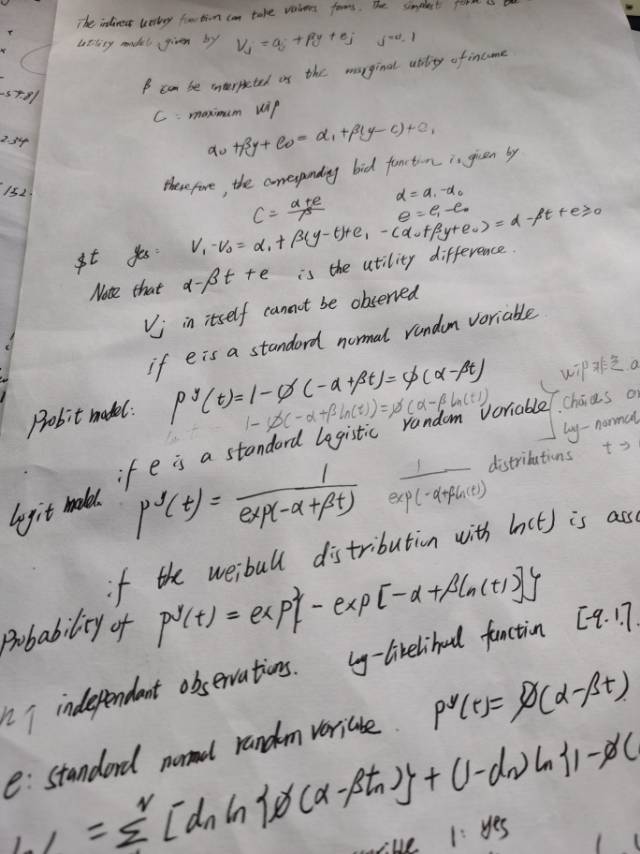 The indirect utility function can take various forms. The simplest form is the
utility model given by Vj = αj + βy + ej j=0,1
β can be interpreted as the marginal utility of income
C: maximum wip
α₀ + βy + e₀ = α₁ + β(y-c) + e₁
therefore, the corresponding bid function is given by
C = α+e/β α = α₁-α₀
e = e₁-e₀
$t yes: V₁-V₀ = α₁ + β(y-t)+e₁ -(α₀+βy+e₀) = α-βt+e≥0
Note that α-βt+e is the utility difference.
Vj in itself cannot be observed
if e is a standard normal random variable
Probit model: Pʸ(t)=1-Ø(-α+βt)=Ø(α-βt)
1-Ø(-α+βln(t))=Ø(α-βln(t))
wip 非负
if e is a standard logistic random variable
choices
log-normal
Logit model. pʸ(t) = 1/exp(-α+βt) 1/exp(-α+βln(t)) distributions t →
if the weibull distribution with ln(t) is
Probability of pʸ(t) = exp{-exp[-α+βln(t)]}
n个 independant observations. log-likelihood function [-9.1.].
e: standard normal random variable. pʸ(t)= Ø(α-βt)
= Σᴺ [dn ln{Ø(α-βtn)} + (1-dn) ln{1-Ø(
1: yes
-57.81
2.34
152.